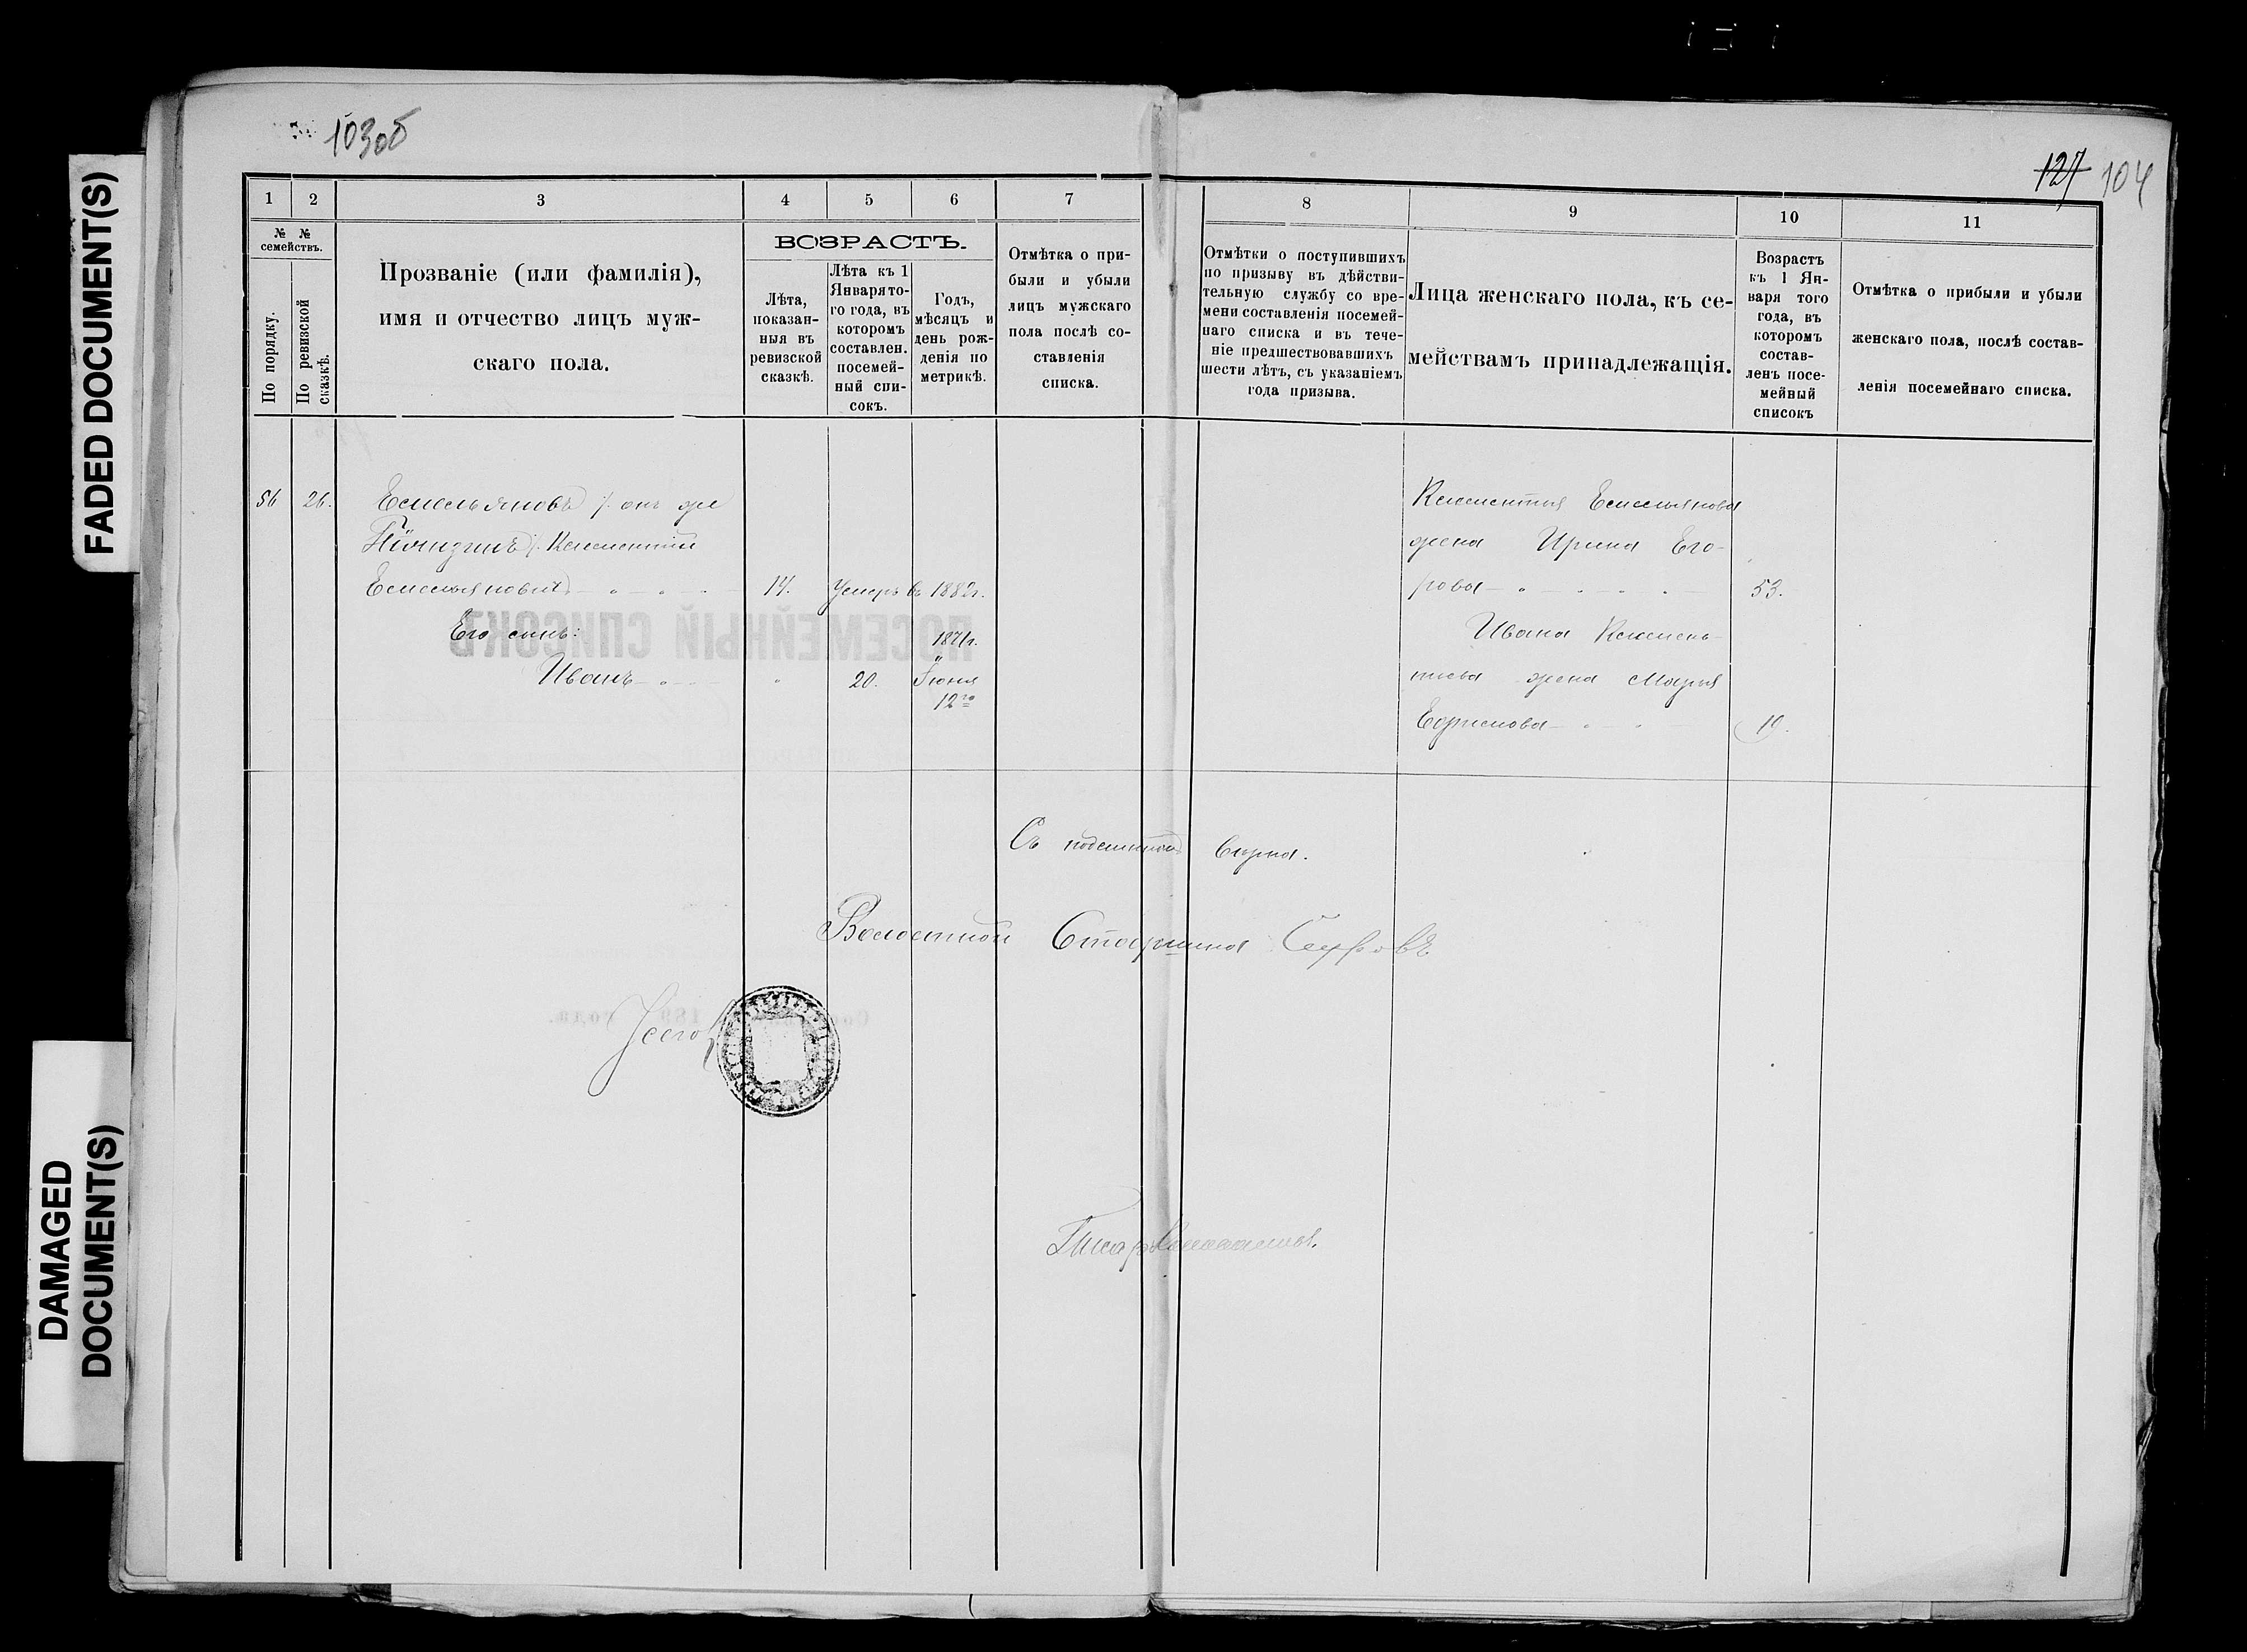 FADED DOCUMENT(S)
DAMAGED
DOCUMENT(S)
103об
127 104
1 2 3 4 5 6 7 8 9 10 11
№ №
семействъ.
По порядку.
По ревизской
сказкѣ.
Прозваніе (или фамилія),
имя и отчество лицъ муж-
скаго пола.
ВОЗРАСТЪ.
Лѣта,
показан-
ныя въ
ревизской
сказкѣ.
Лѣта къ 1
Января то-
го года, въ
которомъ
составлен.
посемей-
ный спи-
сокъ.
Годъ,
мѣсяцъ и
день рож-
денія по
метрикѣ.
Отмѣтка о при-
были и убыли
лицъ мужскаго
пола послѣ со-
ставленія
списка.
Отмѣтки о поступившихъ
по призыву въ дѣйстви-
тельную службу со вре-
мени составленія посемей-
наго списка и въ тече-
ніе предшествовавшихъ
шести лѣтъ, съ указаніемъ
года призыва.
Лица женскаго пола, къ се-
мействамъ принадлежащія.
Возрастъ
къ 1 Ян-
варя того
года, въ
которомъ
состав-
ленъ посе-
мейный
списокъ
Отмѣтка о прибыли и убыли
женскаго пола, послѣ состав-
ленія посемейнаго списка.
56 26. Емельяновъ /. онъ же
/. Клементий
Емельяновъ 14. Умеръ въ 1882г.
Его сынъ:
Иванъ 20. 1871г.
Іюня
12го
Клементия Емельянова
жена Ирина Его-
рова 53.
Ивана Клемен-
тьева жена Марья
Ефимова 19.
Съ подлиннымъ вѣрно.
Волостной Старшина
Писарь